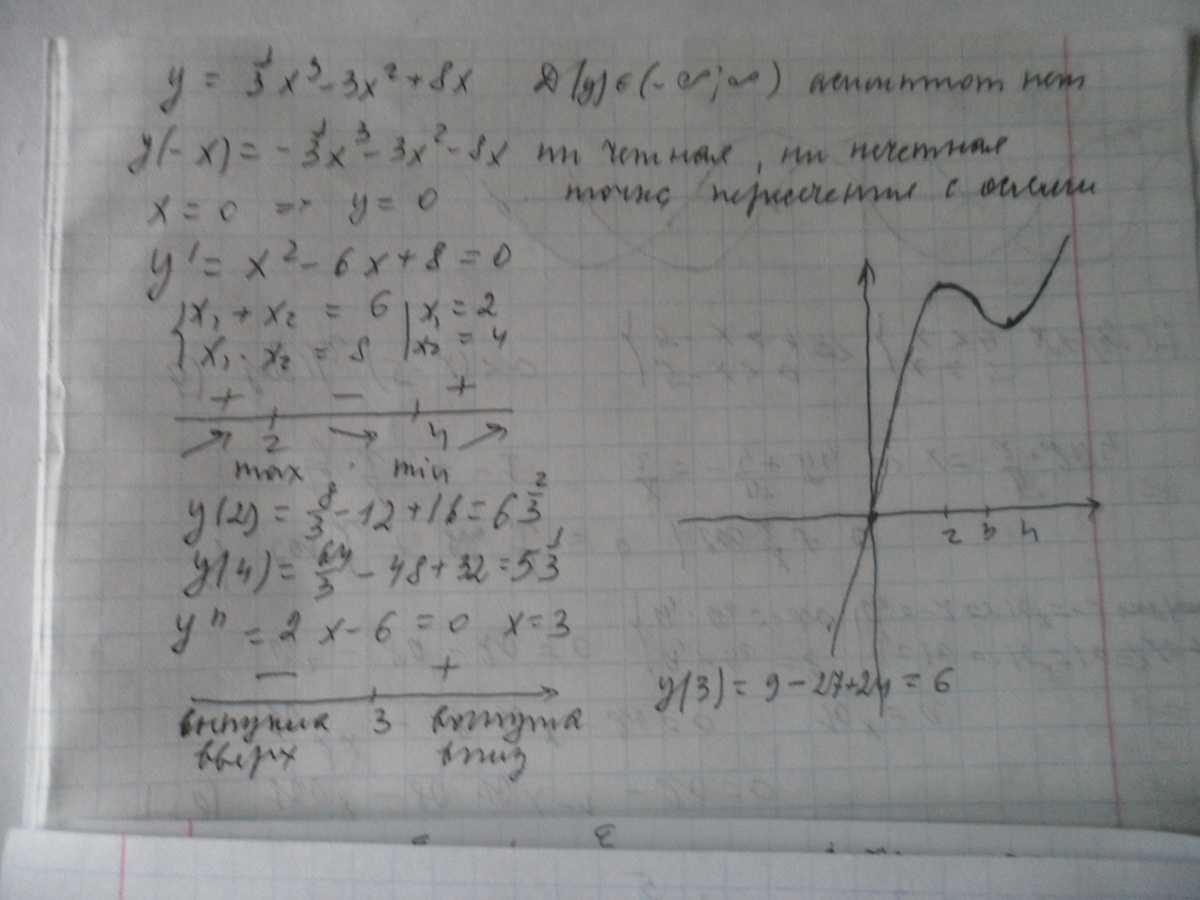 y = 1/3 x³ - 3x² + 8x   D(y) ∈ (-∞; ∞)   асимптот нет
y(-x) = -1/3 x³ - 3x² - 8x   ни четная, ни нечетная
x = 0 => y = 0   точка пересечения с осями
y' = x² - 6x + 8 = 0
x₁ + x₂ = 6   x₁ = 2
x₁ · x₂ = 8   x₂ = 4
+ − +
2 4
max min
y(2) = 8/3 - 12 + 16 = 6 2/3
y(4) = 64/3 - 48 + 32 = 5 1/3
y'' = 2x - 6 = 0   x = 3
− +
выпукла 3 вогнута
вверх вниз
2 3 4
y(3) = 9 - 27 + 24 = 6